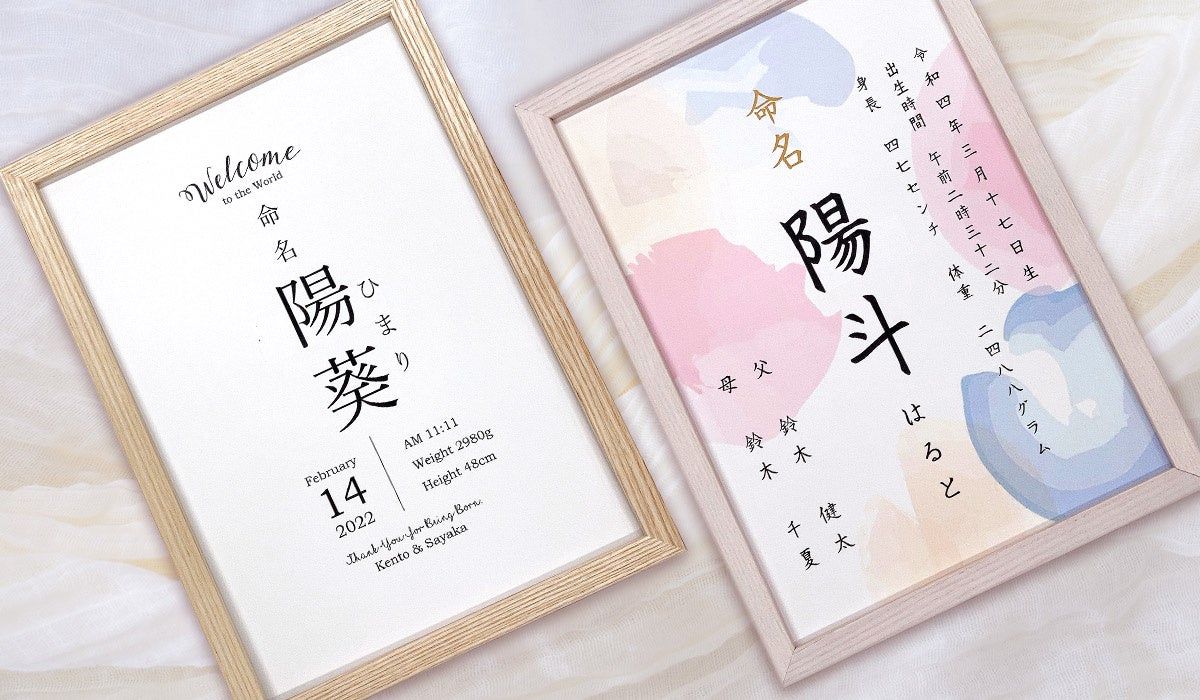 Welcome
to the World
命名
陽葵
ひまり
February
14
2022
AM 11:11
Weight 2980g
Height 48cm
Thank You for Being Born.
Kento & Sayaka
令和四年三月十七日生
出生時間 午前二時三十二分
身長 四七センチ 体重 二四八八グラム
命名
陽斗
はると
父 鈴木 健太
母 鈴木 千夏